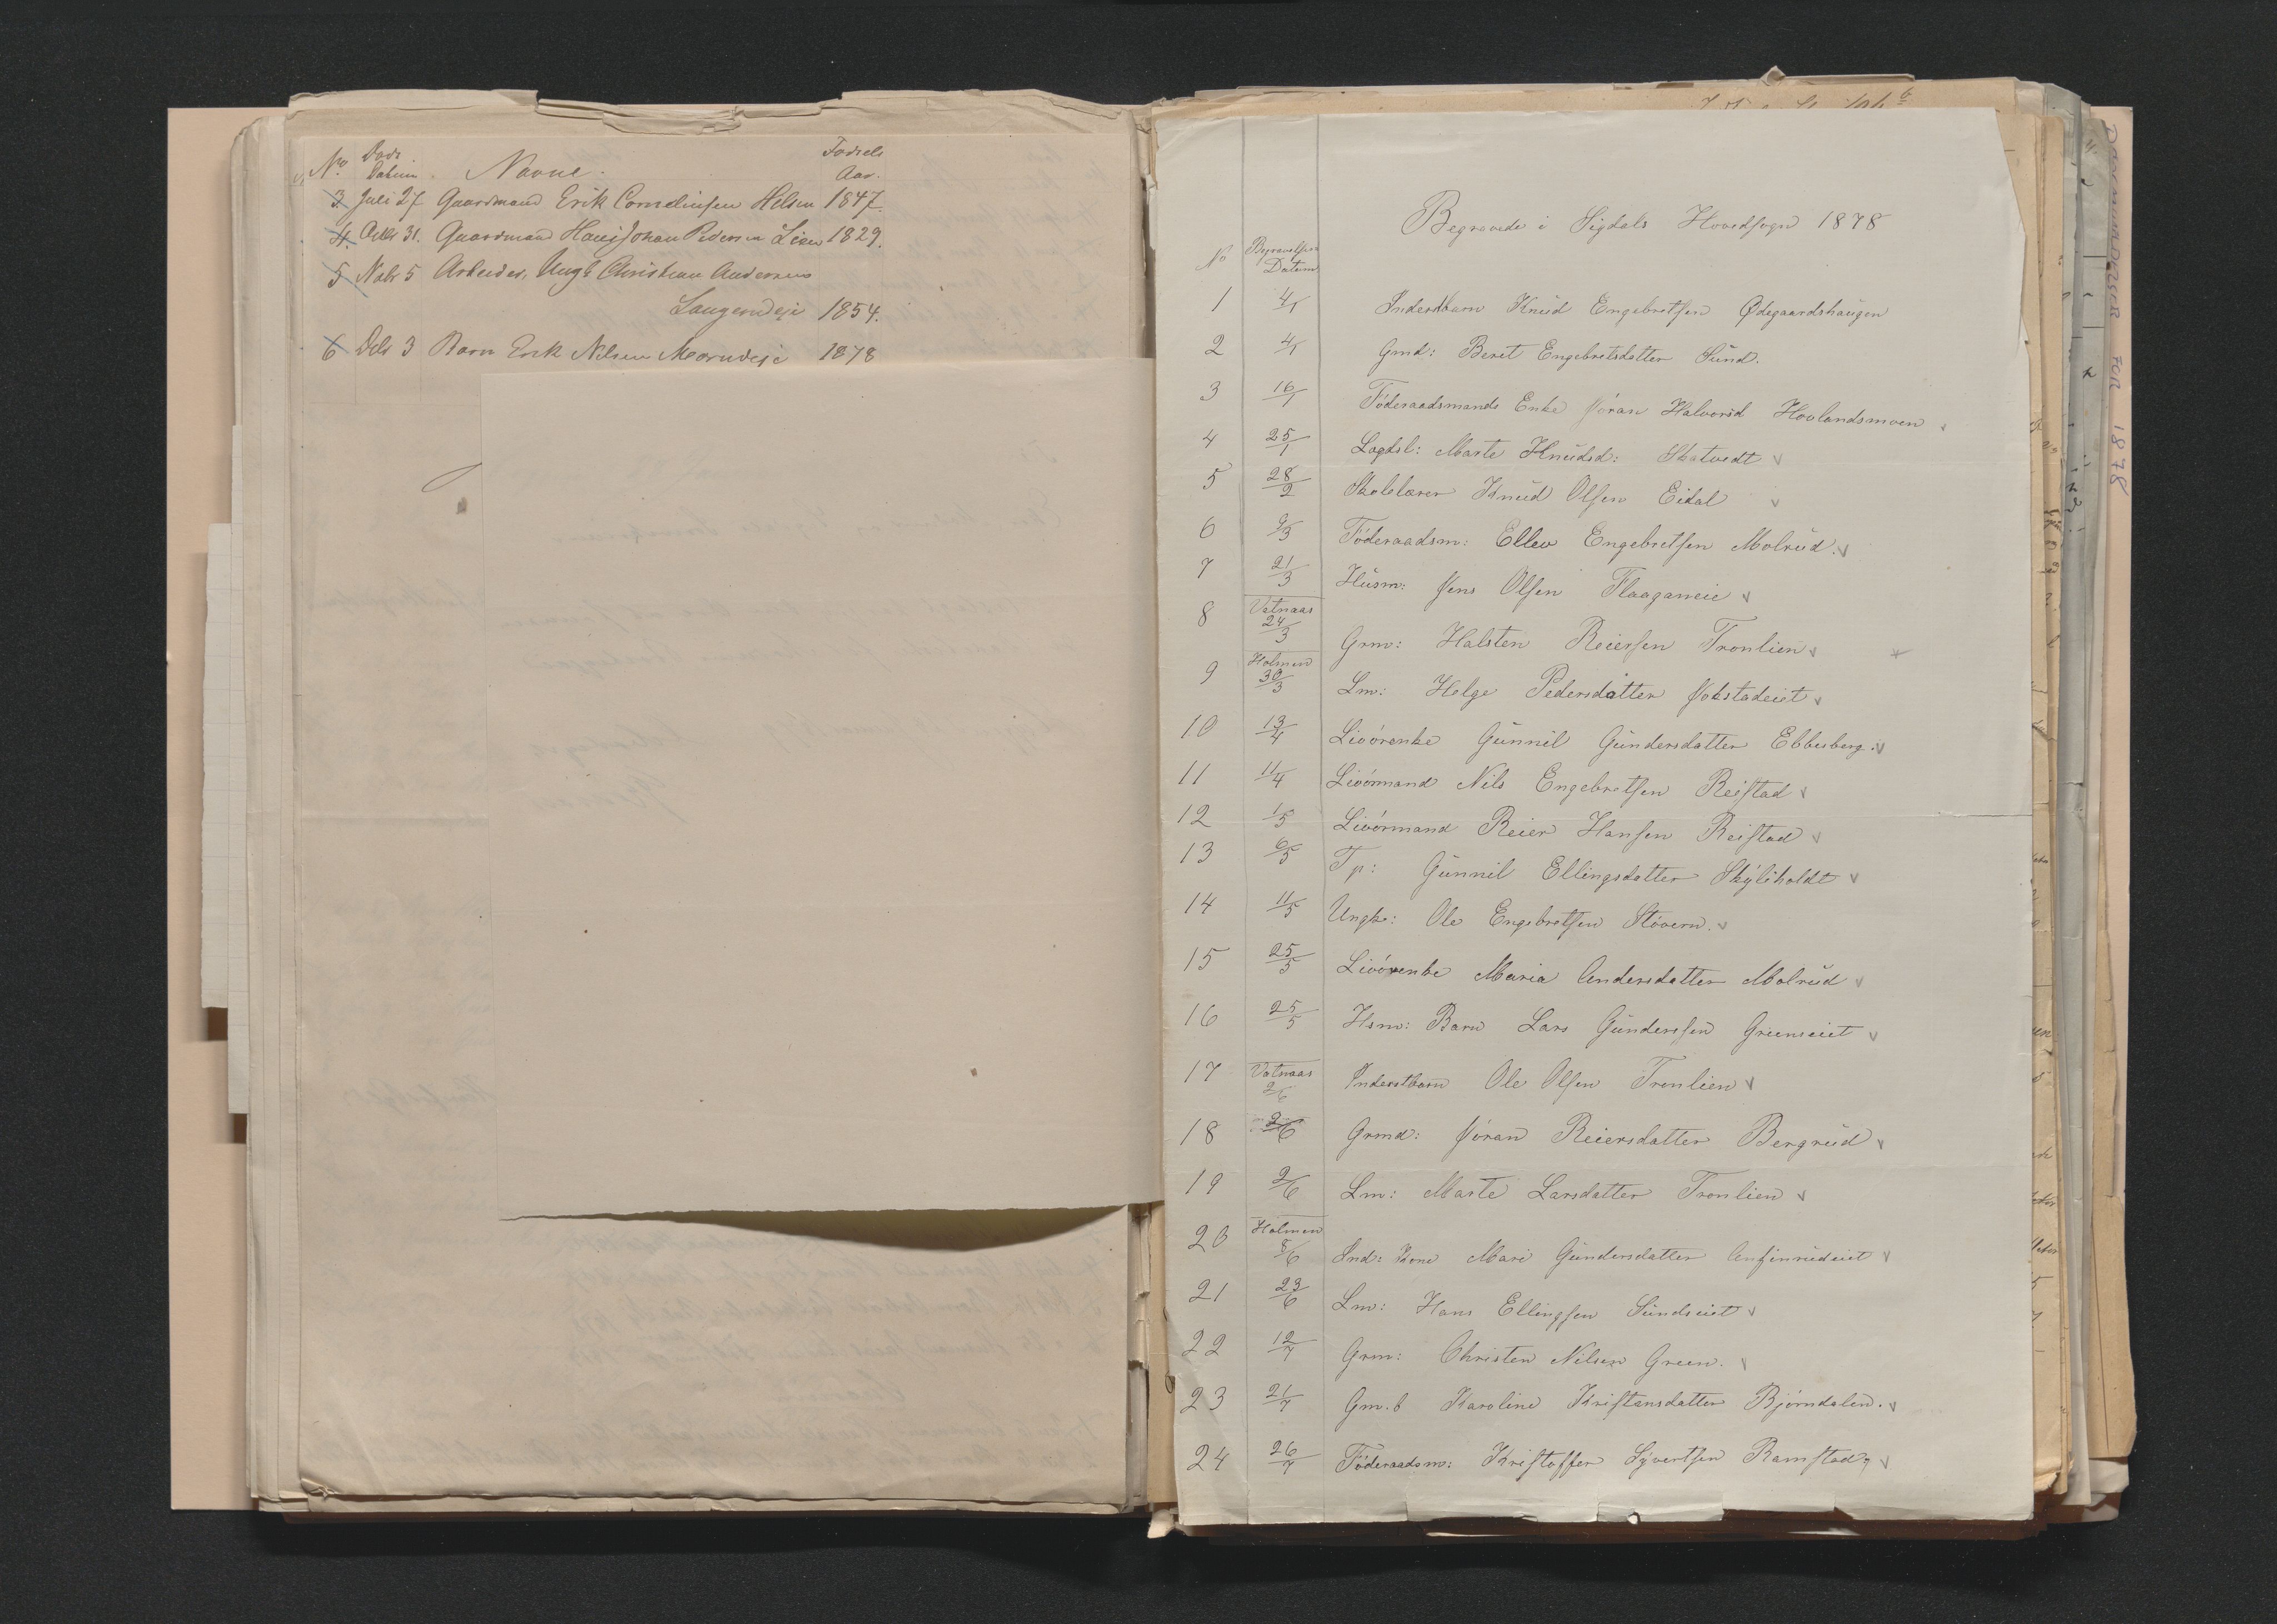 No Døds Datum. Navne. Fødsels Aar.
3. Juli 27 Gaardmand Erik Corneliusen Helsen 1847.
4. Octbr 31. Gaardmand Hans Johan Pedersen Lien 1829.
5 Nobr 5 Arbeider, Ungk Christian Andersen
1854.
6 Debr 3 Barn Erik Nilsen 1878
Begravede i Sigdals Hovedsogn 1878
No Begravelses Datum
1 4/1 Inderstbarn Knud Engebretsen Ødegaardshaugen
2 4/1 Gmd: Beret Engebretsdatter Sund.
3 16/1 Föderaadsmands Enke Jöran Halvorsd Hovlandsmoen
4 25/1 Lagdsl: Marte Knudsd: Skatvedt
5 28/2 Skolelærer Knud Olsen Eidal
6 9/3 Föderaadsm: Ellev Engebretsen Molrud.
7 21/3 Husm: Jens Olsen Flaaganeie
8 Vatnaas 24/3 Grm: Halsten Reiersen Tronlien
9 Holmen 30/3 Lm: Helge Pedersdatter Jokstadeiet
10 13/4 Livörenke Gunnil Gundersdatter Ebbesberg.
11 11/4 Livörmand Nils Engebretsen Reistad
12 1/5 Livörmand Reier Hansen Reistad
13 6/5 Tp: Gunnil Ellingsdatter Skyliholdt
14 11/5 Ungk: Ole Engebretsen Stövern.
15 25/5 Livörenke Maria Andersdatter Molrud
16 25/5 Hsm: Barn Lars Gundersen Greeneiet
17 Vatnaas 2/6 Inderstbarn Ole Olsen Tronlien
18 2/6 Grmd: Jöran Reiersdatter Bergrud
19 2/6 Lm: Marte Larsdatter Tronlien
20 Holmen 8/6 Ind: Kone Mari Gundersdatter Anfinrudeiet
21 23/6 Lm: Hans Ellingsen Sundseiet
22 12/7 Grm: Christen Nilsen Green.
23 21/7 Gm. b Karoline Kristensdatter Björndalen.
24 26/7 Föderaadsm: Kristoffer Syvertsen Ramstad
FOR 1878